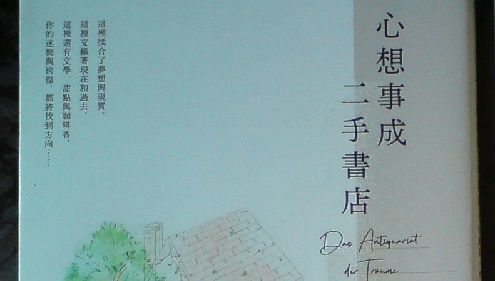 心想事成
二手書店
Das Antiquariat
der Träume
這裡揉合了夢想與現實，
這裡交織著現在和過去，
這裡還有文學、甜點與咖啡香，
你的迷惘與徬徨，都將找到方向……